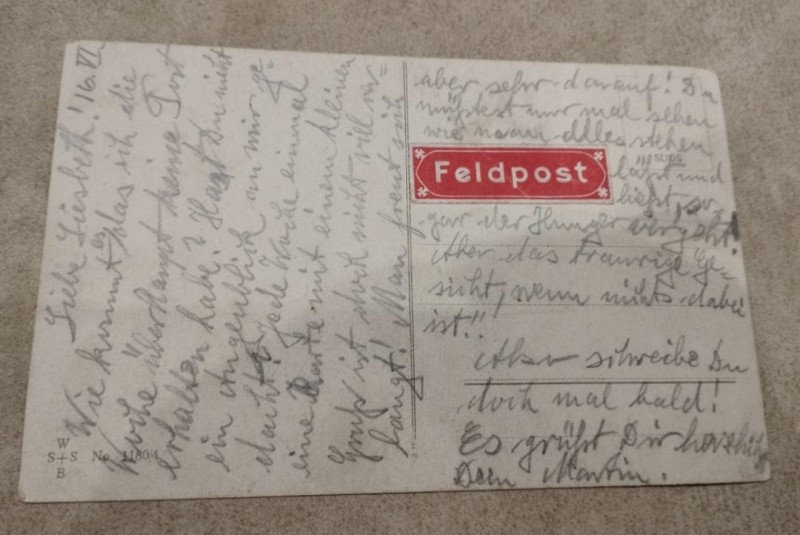 Liebe Liesbeth! 16. VI.
Wie kommt es, das ich die
Woche überhaupt keine Post
erhalten habe? Hast Du nicht
ein Augenblick an mir ge-
dacht? jede Woche einmal
eine Karte mit einem kleinen
Gruß ist doch nicht viel ver=
langt! Man freut sich
aber sehr darauf! Du
müßtest nur mal sehen
wie man Alles stehen
läßt und
ließt, so-
gar der Hunger vergeht!
Aber das traurige Ge=
sicht, wenn nichts dabei
ist!!
Also schreibe Du
doch mal bald!
Es grüßt Dir herzlich
Dein Martin.
Feldpost
W
S+S No. 1180/1
B